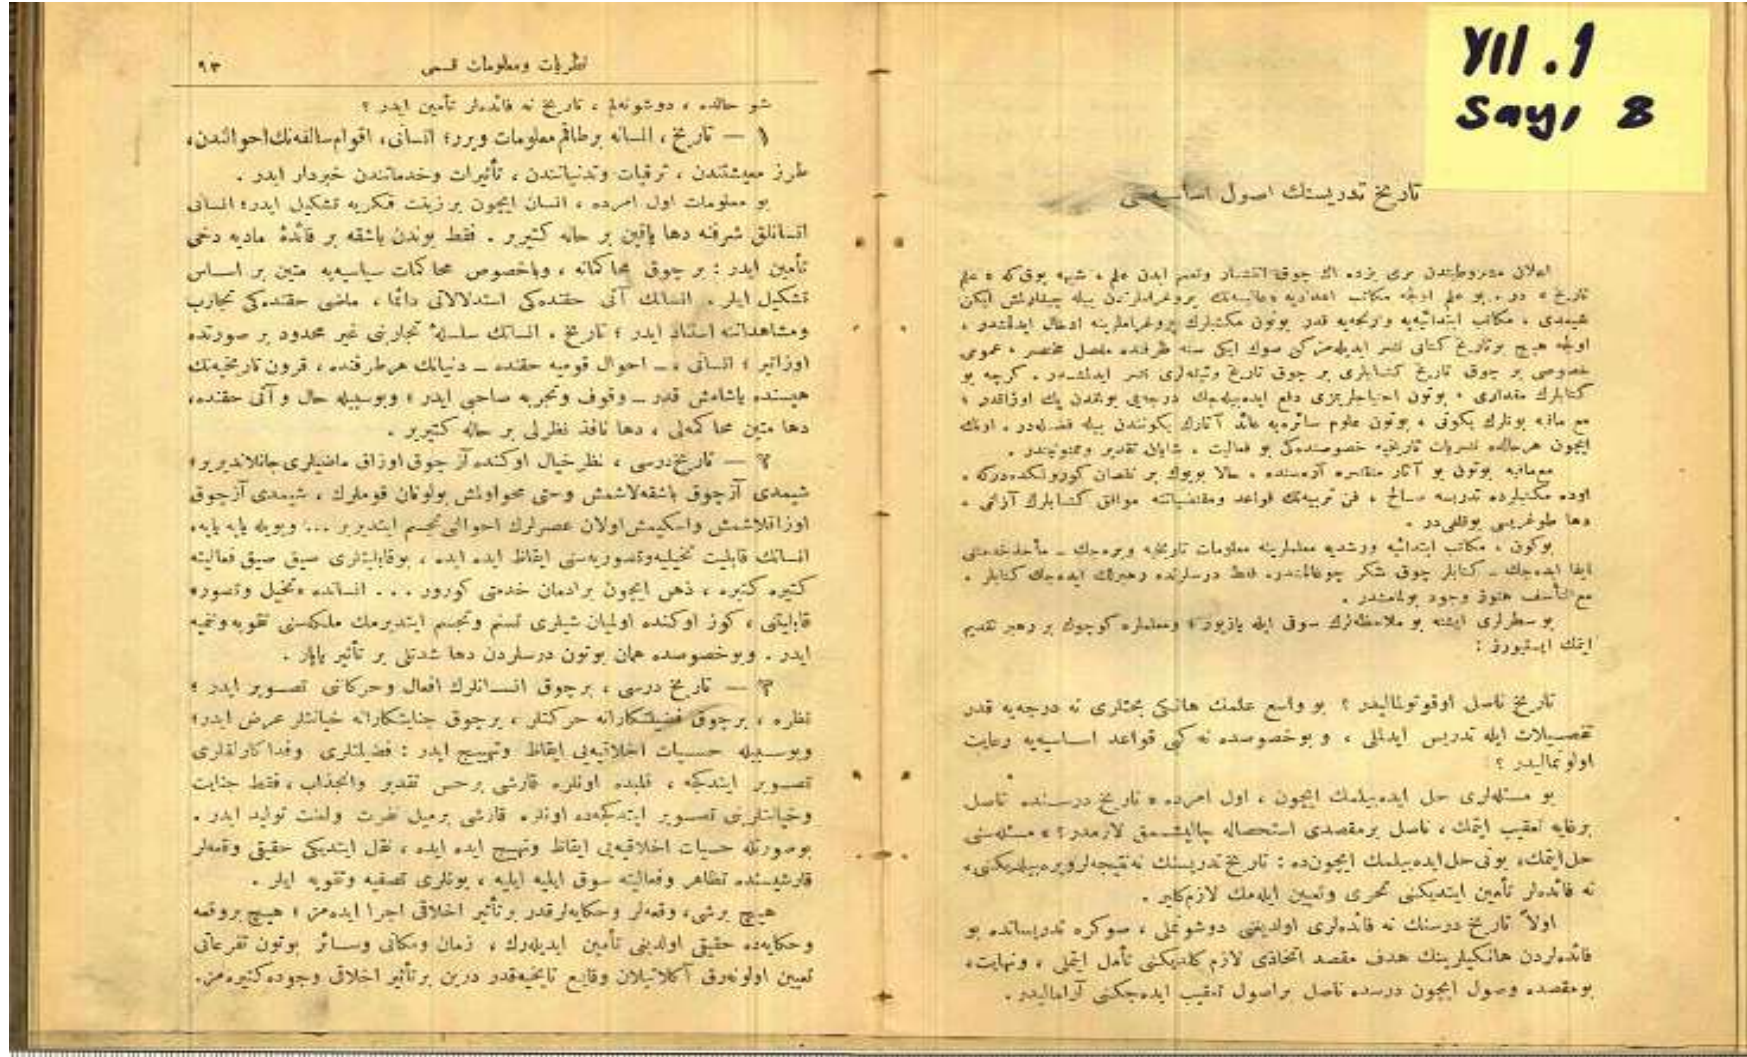 YIL.1
Sayı 8
تاريخ تدريسنك اصول اساسيه‌سى
اعلان مشروطيتدن برى بزده اڭ چوق انتشار وتعمم ايدن علم ، شبهه يوق كه « علم
تاريخ » در . بو علم اولجه مكاتب اعداديه وعاليه‌نك پروغراملرندن بيله چيقارلمش ايكن
شيمدى ، مكاتب ابتدائيه‌يه وارنجه‌يه قدر بوتون مكتبلرك پروغراملرينه ادخال ايدلمشدر ،
اولجه هيچ بر تاريخ كتابى نشر ايديله‌مزكن صوك ايكى سنه ظرفنده مفصل مختصر ، عمومى
خصوصى بر چوق تاريخ كتابلرى بر چوق تاريخ وثيقه‌لرى نشر ايدلمشدر . كرچه بو
كتابلرك مقدارى ، بوتون احتياجلريمزى دفع ايده‌بيله‌جك درجه‌يى بولمقدن پك اوزاقدر ؛
مع مافيه بونلرك يكونى ، بوتون علوم سائره‌يه عائد آثارك يكونندن بيله فضله‌در . اونك
ايچون هرحالده نشريات تاريخيه خصوصنده‌كى بو فعاليت ، شايان تقدير وممنونيتدر .
مع‌مافيه بوتون بو آثار منتشره آره‌سنده ، حالا بويوك بر نقصان كورولكده‌دركه ،
اوده مكتبلرده تدريسه صالح ، فن تربيه‌نك قواعد ومقتضياتنه موافق كتابلرك آزلغى ،
دها طوغريسى يوقلغى‌در .
بوكون ، مكاتب ابتدائيه ورشديه معلملرينه معلومات تاريخيه ويره‌جك ـ مأخذ خدمتنى
ايفا ايده‌جك ـ كتابلر چوق شكر چوغالمشدر. فقط درسلرنده رهبرلك ايده‌جك كتابلر ،
مع التأسف هنوز وجود بولمامشدر .
بو سطرلرى ايشته بو ملاحظه‌لرك سوقى ايله يازيور ؛ ومعلملره كوچوك بر رهبر تقديم
ايتمك ايسته‌يورز :
تاريخ ناصل اوقوتولماليدر ؟ بو واسع علمك هانكى بحثلرى نه درجه‌يه قدر
تفصيلات ايله تدريس ايدلملى ، و بوخصوصده نه كبى قواعد اساسيه‌يه رعايت
اولونماليدر ؟
بو مسئله‌لرى حل ايده‌بيلمك ايچون ، اول امرده « تاريخ درسنده ناصل
برغايه تعقيب ايتمك ، ناصل برمقصدى استحصاله چاليشمق لازمدر؟ » مسئله‌سنى
حل ايتمك، بونى حل ايده‌بيلمك ايچون‌ده : تاريخ تدريسنك نه نتيجه‌لر ويره‌بيله‌جكنى،
نه فائده‌لر تأمين ايتديكنى تحرى وتعيين ايله‌مك لازم‌كلير .
اولاً تاريخ درسنك نه فائده‌لرى اولديغنى دوشونملى ، صوكره تدريساتده بو
فائده‌لردن هانكيلرينك هدف مقصد اتخاذى لازم كلديكنى تأمل ايتملى ، ونهايت،
بومقصده وصول ايچون درسده ناصل براصول تعقيب ايده‌جكنى آراماليدر .
نظريات ومعلومات قسمى
٩٣
شو حالده ، دوشونه‌لم ، تاريخ نه فائده‌لر تأمين ايدر ؟
١ — تاريخ ، انسانه برطاقم معلومات ويرر؛ انسانى، اقوام سالفه‌نك احوالندن،
طرز معيشتندن ، ترقيات وتدنياتندن ، تأثيرات وخدماتندن خبردار ايدر .
بو معلومات اول امرده ، انسان ايچون بر زينت فكريه تشكيل ايدر؛ انسانى
انسانلق شرفنه دها ياقين بر حاله كتيرير . فقط بوندن باشقه بر فائدهٔ ماديه دخى
تأمين ايدر : بر چوق محاكماته ، وباخصوص محاكمات سياسيه‌يه متين بر اساس
تشكيل ايلر . انسانك آتى حقنده‌كى استدلالاتى دائما ، ماضى حقنده‌كى تجارب
ومشاهداتنه استناد ايدر ؛ تاريخ ، انسانك سلسلهٔ تجاربنى غير محدود بر صورتده
اوزاتير ؛ انسانى ، ـ احوال قوميه حقنده ـ دنيانك هرطرفنده ، قرون تاريخيه‌نك
هپسنده ياشامش قدر ـ وقوف وتجربه صاحبى ايدر ؛ وبوسيله حال و آتى حقنده،
دها متين محاكمه‌لى ، دها نافذ نظرلى بر حاله كتيرير .
٢ — تاريخ درسى ، نظر خيال اوكنده آز چوق اوزاق ماضيلرى جانلانديرير؛
شيمدى آزچوق باشقه‌لاشمش وحتى محو اولمش بولونان قوملرك ، شيمدى آزچوق
اوزاقلاشمش واسكيمش اولان عصرلرك احوالنى تجسم ايتديرير ... وبويله يابه يابه،
انسانك قابليت تخيليه وتصوريه‌سنى ايقاظ ايده ايده ، بوقابليتلرى صيق صيق فعاليته
كتيره كتيره ، ذهن ايچون برادمان خدمتى كورور ... انسانده «تخيل وتصور»
قابليتى ، كوز اوكنده اولميان شيلرى تسنم وتجسم ايتديرمك ملكه‌سنى تقويه وتنميه
ايدر . وبوخصوصده همان بوتون درسلردن دها شدتلى بر تأثير ياپار .
٣ — تاريخ درسى ، برچوق انسانلرك افعال وحركاتنى تصوير ايدر ؛
نظره ، برچوق فضيلتكارانه حركتلر ، برچوق جنايتكارانه خيانتلر عرض ايدر؛
وبوسبيله حسيات اخلاقيه‌يى ايقاظ وتهييج ايدر : فضيلتلرى وفداكارلقلرى
تصوير ايتدكجه ، قلبده اونلره قارشى برحس تقدير وانجذاب ، فقط جنايت
وخيانتلرينى تصوير ايتدكجه‌ده اونلره قارشى برميل نفرت ولعنت توليد ايدر .
بوصورتله حسيات اخلاقيه‌يى ايقاظ وتهييج ايده ايده ، نقل ايتديكى حقيقى وقعه‌لر
قارشيسنده تظاهر وفعاليته سوق ايليه ايليه ، بونلرى تصفيه وتقويه ايلر .
هيچ برشى، وقعه‌لر وحكايه‌لر قدر برتأثير اخلاقى اجرا ايده‌مز ؛ هيچ بروقعه
وحكايه‌ده حقيقى اولديغى تأمين ايديله‌رك ، زمان ومكانى وسائر بوتون تفرعاتى
تعيين اولونه‌رق آكلاتيلان وقايع تاريخيه‌قدر درين برتأثير اخلاقى وجوده كتيره‌مز.